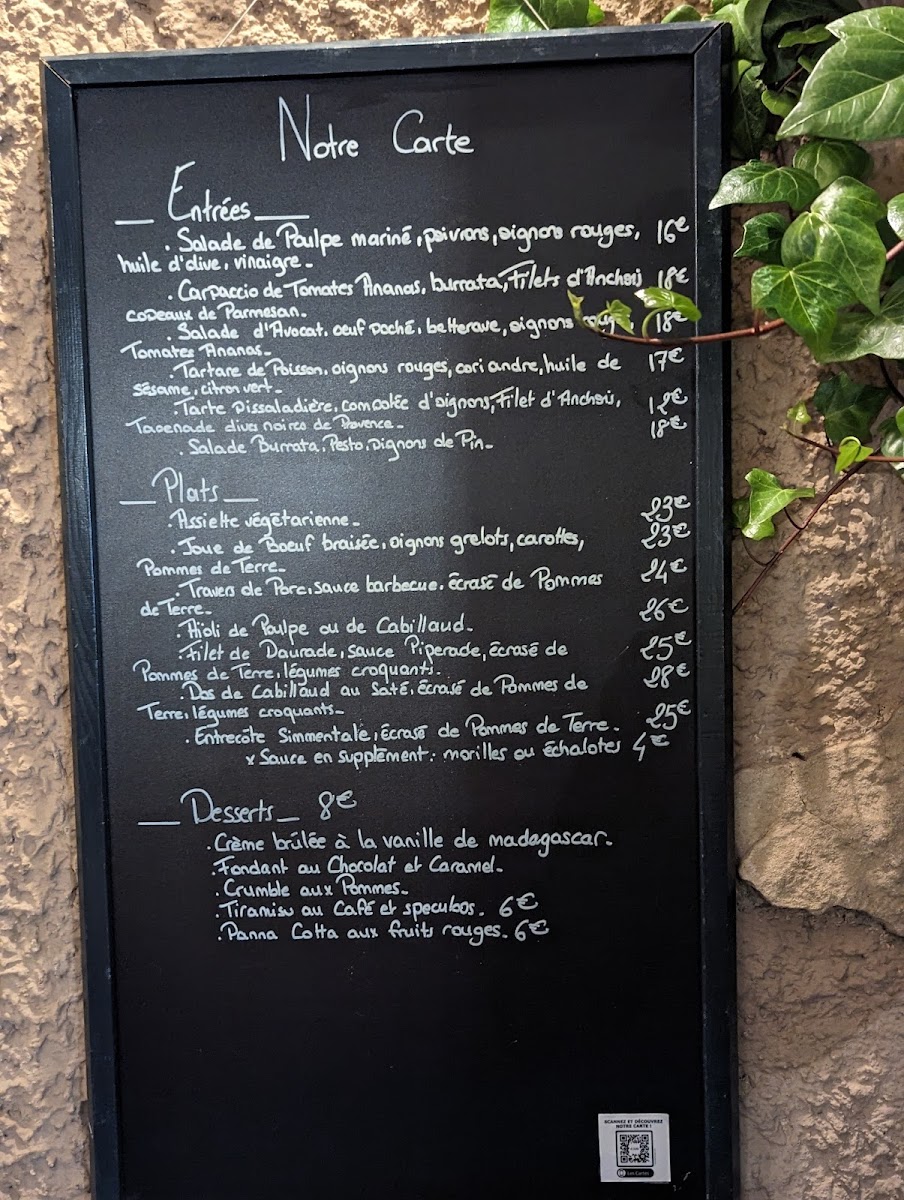 Notre Carte
Entrées
. Salade de Poulpe mariné, poivrons, oignons rouges, 16€
huile d'olive, vinaigre.
. Carpaccio de Tomates Ananas, burrata, Filets d'Anchois 18€
copeaux de Parmesan.
. Salade d'Avocat, oeuf poché, betterave, oignons rouges, 18€
Tomates Ananas.
. Tartare de Poisson, oignons rouges, coriandre, huile de 17€
sésame, citron vert.
. Tarte Pissaladière, compotée d'oignons, Filet d'Anchois, 12€
Tapenade olives noires de Provence.
. Salade Burrata, Pesto, Pignons de Pin. 18€
Plats
. Assiette végétarienne. 23€
. Joue de Boeuf braisée, oignons grelots, carottes, 23€
Pommes de Terre.
. Travers de Porc, sauce barbecue, écrasé de Pommes 24€
de Terre.
. Aïoli de Poulpe ou de Cabillaud. 26€
. Filet de Daurade, sauce Piperade, écrasé de 25€
Pommes de Terre, légumes croquants.
. Dos de Cabillaud au Saté, écrasé de Pommes de 28€
Terre, légumes croquants.
. Entrecôte Simmentale, écrasé de Pommes de Terre. 25€
x Sauce en supplément : morilles ou échalotes 4€
Desserts 8€
. Crème brûlée à la vanille de madagascar.
. Fondant au Chocolat et Caramel.
. Crumble aux Pommes.
. Tiramisu au Café et speculoos. 6€
. Panna Cotta aux fruits rouges. 6€
SCANNEZ ET DÉCOUVREZ
NOTRE CARTE !